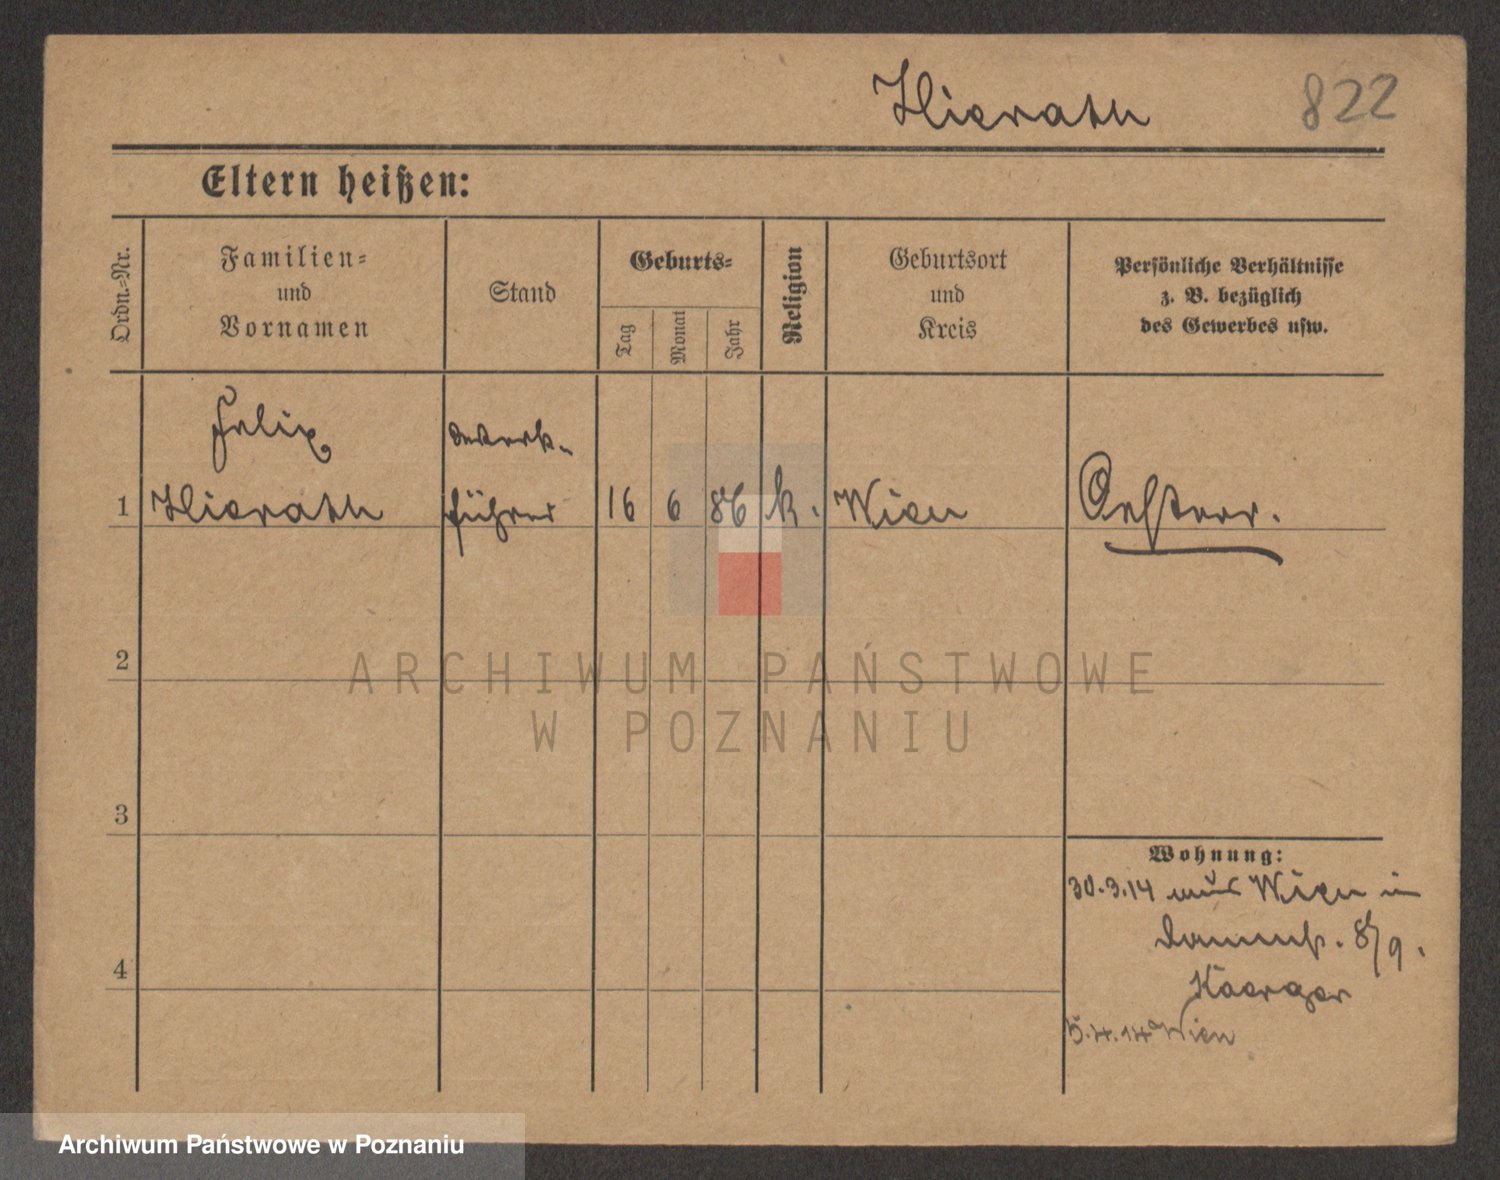 Hierath 822
Eltern heißen:
Ordn.-Nr.
Familien-
und
Vornamen
Stand
Geburts-
Tag
Monat
Jahr
Religion
Geburtsort
und
Kreis
Persönliche Verhältnisse
z. B. bezüglich
des Gewerbes usw.
Felix Werk-
1 Hierath führer 16 6 86 k. Wien Oesterr.
2
3
4
Wohnung:
30.3.14 aus Wien in
8/9.
Kaerger
5.4.14 Wien
ARCHIWUM PAŃSTWOWE
W POZNANIU
Archiwum Państwowe w Poznaniu